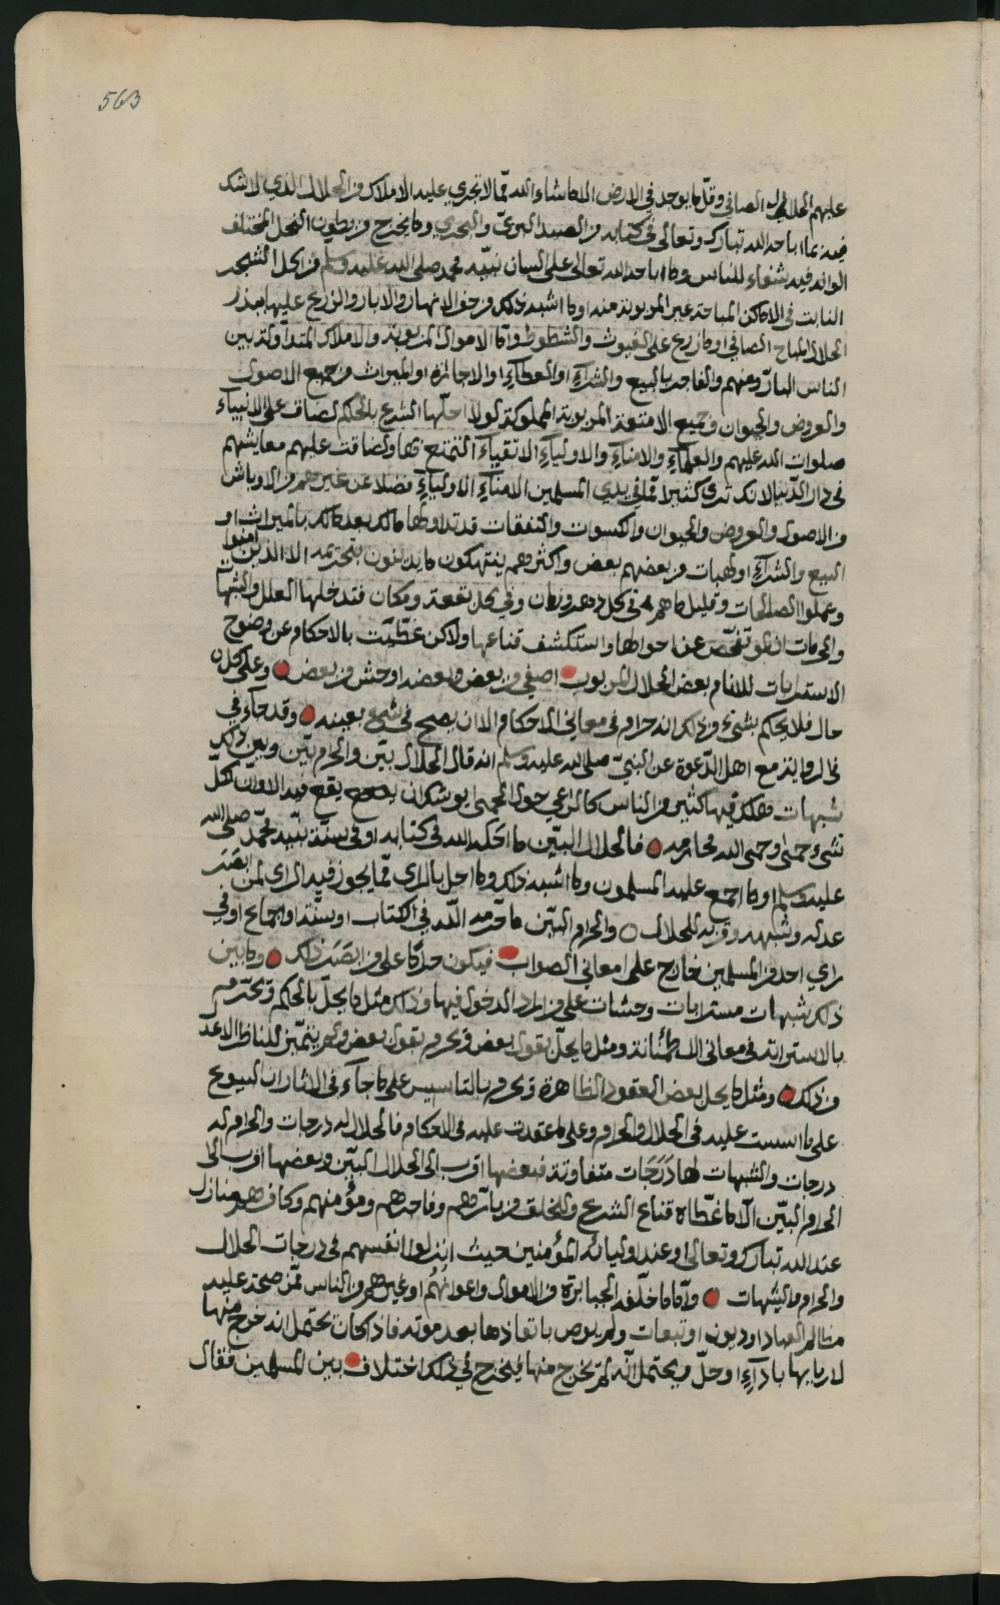 563
عليهم الحلال الصافي وقل ما يوجد في الارض الا ما شاء الله مما لا تجري عليه الاملاك من الحلال الذي لا شك
فيه مما اباحه الله تبارك وتعالى في كتابه من الصيد البري والبحري وما يخرج من بطون النحل المختلف
الوانه فيه شفاء للناس وما اباحه الله تعالى على لسان نبيه محمد صلى الله عليه وسلم من اكل الشجر
النابت في الاماكن المباحة غير المربوبة منه او ما اشبه ذلك من حفر الانهار والابار والزرع عليها ببذر
الحلال المباح الصافي او ما زرع على الغيوث والشطوط واما الاموال المربوبة والاملاك المتداولة بين
الناس البار منهم والفاجر بالبيع والشراء او العطاء او الاجارة او الميراث من جميع الاصول
والعروض والحيوان وجميع الامتعة المربوبة المملوكة لولا احلها الشرع بالحكم لضاق على الانبياء
صلوات الله عليهم والعلماء والامناء والاولياء الاتقياء التمتع بها ولضاقت عليهم معايشهم
في دار الدنيا لانك ترى كثيرا مما في يدي المسلمين الامناء الاولياء فضلا عن غيرهم من الاوباش
من الاصول والعروض والحيوان والكسوات والنفقات قد تداولها مالك بعد مالك بالميراث او
البيع والشراء او الهبات من بعضهم بعض واكثرهم ينتهكون ما يدينون بتحريمه الا الذين امنوا
وعملوا الصالحات وقليل ما هم في كل دهر وزمان وفي كل بقعة ومكان فتدخلها العلل والشبهات
والحرمات ان لو تفحص عن احوالها واستكشف قناعها ولاكن غطيت بالاحكام عن وضوح
الاسترابات للانام بعض الحلال المربوب اصفى من بعض وبعضه اوحش من بعض وعلى كل
حال فلا يحكم بشيء من ذلك انه حرام في معاني الاحكام الا ان يصح في شيء بعينه وقد جاء في
في الرواية مع اهل الدعوة عن النبي صلى الله عليه وسلم انه قال الحلال بين والحرام بين وبين ذلك
شبهات هلك فيها كثير من الناس كالراعي حول الحمى يوشك ان يقع فيه الا وان لكل
شيء حمى وحمى الله محارمه فالحلال البين ما احله الله في كتابه او في سنة نبيه محمد صلى الله
عليه وسلم او ما اجمع عليه المسلمون وما اشبه ذلك وما احل بالراي مما يجوز فيه الراي لمن ابصر
عدله وشبهه وقربه للحلال والحرام البين ما حرمه الله في الكتاب او سنة او اجماع او في
راي احد من المسلمين خارج على معاني الصواب فيكون حراما على من ابصر ذلك وما بين
ذلك شبهات مسترابات وحشات على من اراد الدخول فيها وذلك مثل ما يحل بالحكم ويحرم
بالاسترابة في معاني الاطمئنانة ومثل ما يحل بقول بعض ويحرم بقول بعض ولم يتميز للناظر الاعدل
من ذلك ومثل ما يحل بعض العقود الظاهرة ويحرم بالتاسيس على ما جاء في الاثار ان البيوع
على ما اسست عليه في الحلال والحرام وعلى ما عقدت عليه في الاحكام فالحلال له درجات والحرام له
درجات والشبهات لها درجات متفاوتة فبعضها اقرب الى الحلال البين وبعضها اقرب الى
الحرام البين الا ما غطاه قناع الشرع والخلق من بارهم وفاجرهم ومؤمنهم وكافرهم منازل
عند الله تبارك وتعالى وعند اوليائه المؤمنين حيث انزلوا انفسهم في درجات الحلال
والحرام والشبهات واما ما خلفه الجبابرة من الاموال واعوانهم او غيرهم من الناس ممن صحت عليه
مظالم العباد او ديون او تبعات ولم يوص بانفاذها بعد موته فاذا كان يحتمل انه خرج منها
لاربابها باداء او حل ويحتمل انه لم يخرج منها فيخرج في ذلك اختلاف بين المسلمين فقال